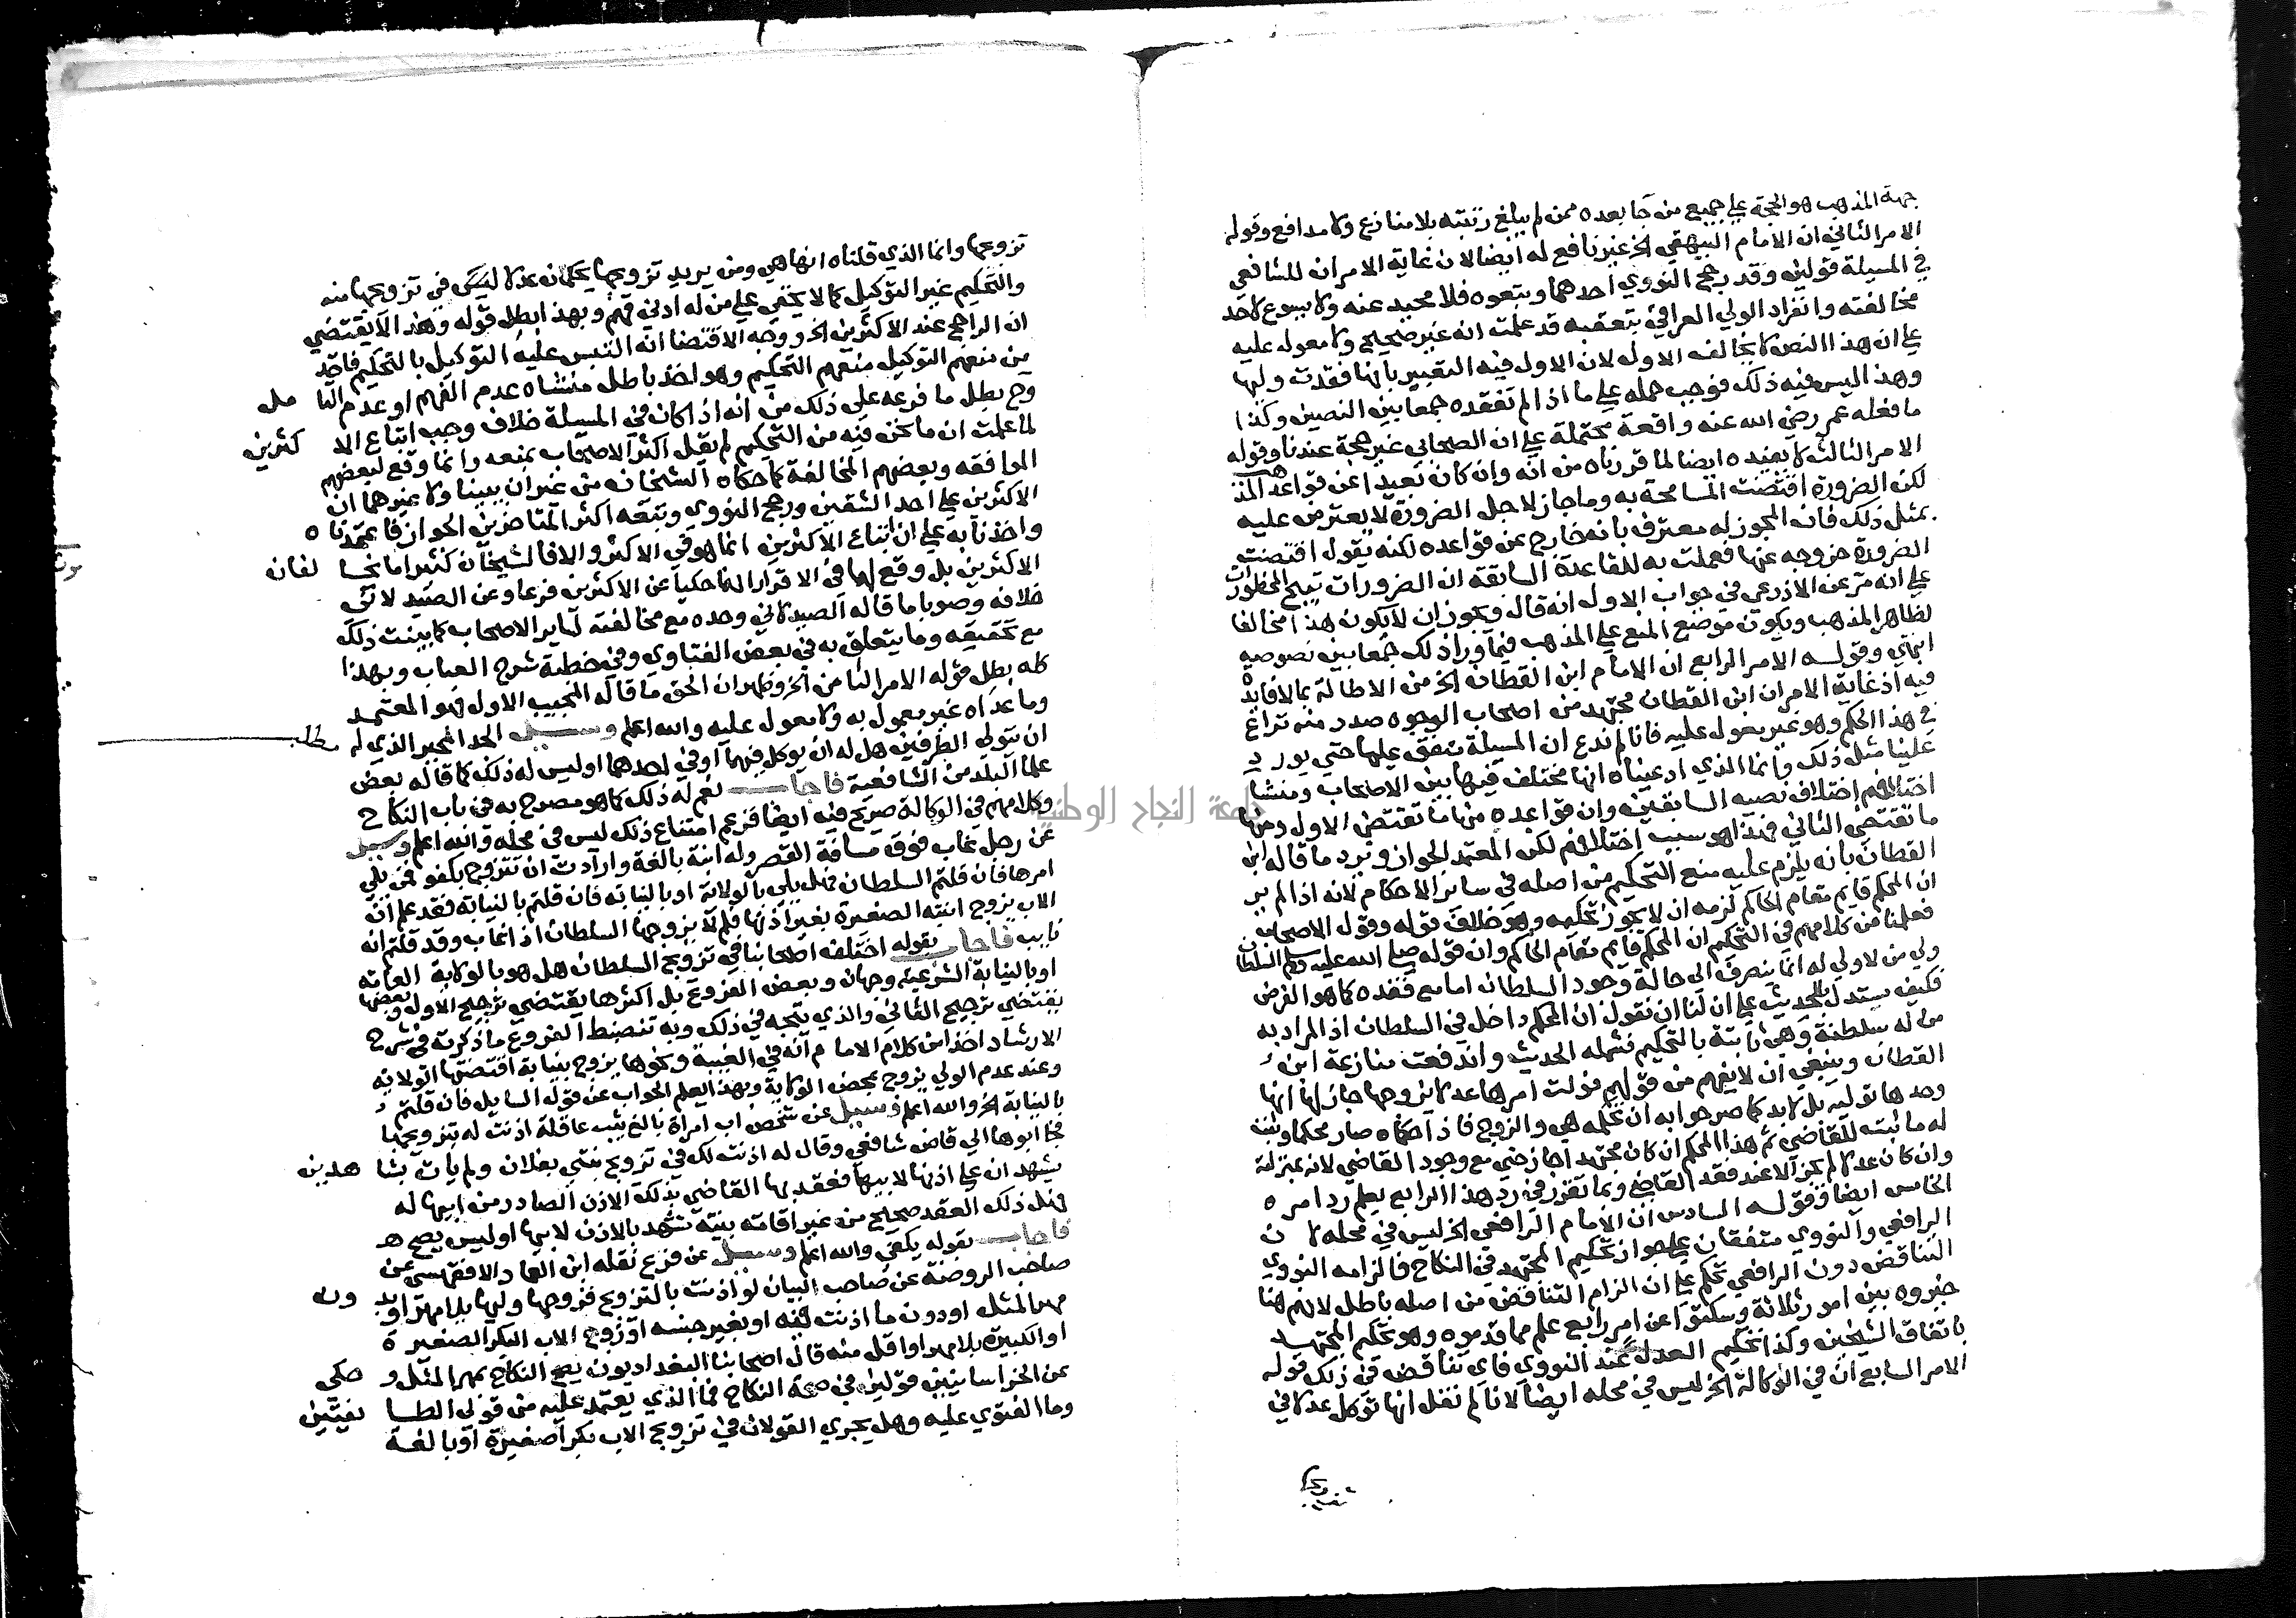 جهة المذهب هو الحجة علي جميع من جا بعده ممن لم يبلغ رتبته بلا منازع ولا مدافع وقوله
الامر الثاني ان الامام البيهقي الخ غير نافع له ايضا لان غاية الامر ان للشافعي
في المسيلة قولين وقد رجح النووي احدهما وتبعوه فلا محيد عنه ولا يسوع لاحد
مخالفته وانفراد الولي العراقي بتعقبه قد علمت انه غير صحيح ولا معول عليه
علي ان هذا النص لا يخالف الاول لان الاول فيه التعبير بانها فقدت وليها
وهذا ليس فيه ذلك فوجب حمله علي ما اذا لم تفقده جمعا بين النصين وكذا
ما فعله عمر رضي الله عنه واقعة محتملة علي ان الصحابي غير حجة عندنا وقوله
الامر الثالث لا يفيده ايضا لما قررناه من انه وان كان بعيدا عن قواعد المذهب
لكن الضرورة اقتضت المسامحة به وما جاز لاجل الضرورة لا يعترض عليه
بمثل ذلك فان المجوز له معترف بانه خارج عن قواعده لكنه يقول اقتضت
الضرورة خروجه عنها فعملت به للقاعدة السابقة ان الضرورات تبيح المحظورات
علي انه مر عن الاذرعي في جواب الاول انه قال ويجوز ان لا يكون هذا مخالفا
لظاهر المذهب ويكون موضع المنع علي المذهب فيما ورا ذلك جمعا بين نصوصه
انتهي وقوله الامر الرابع ان الامام ابن القطان الخ من الاطالة بما لا فايدة
فيه اذ غاية الامر ان ابن القطان مجتهد من اصحاب الوجوه صدر منه نزاع
في هذا الحكم وهو غير معول عليه فانا لم ندع ان المسيلة متفق عليها حتي يورد
علينا مثل ذلك وانما الذي ادعيناه انها مختلف فيها بين الاصحاب ومنشا
اختلافهم اختلاف نصيه السابقين وان قواعده منها ما تقتضي الاول ومنها
ما تقتضي الثاني فهذا هو سبب اختلافهم لكن المعتمد الجواز ويرد ما قاله ابن
القطان بانه يلزم عليه منع التحكيم من اصله في ساير الاحكام لانه اذا لم ير
ان المحكم قايم مقام الحاكم لزمه ان لا يجوز تحكيمه وهو خلاف قوله وقول الاصحاب
فعلمنا من كلامهم في التحكيم ان المحكم قايم مقام الحاكم وان قوله صلي الله عليه وسلم السلطان
ولي من لا ولي له انما ينصرف الي حالة وجود السلطان اما مع فقده كما هو الفرض
فكيف يستدل بالحديث علي ان لنا ان نقول ان المحكم داخل في السلطان اذ المراد به
من له سلطنة وهي ثابتة بالتحكيم فشمله الحديث واندفعت منازعة ابن
القطان وينبغي ان لا يفهم من قولهم فولت امرها عدلا يزوجها جاز لها انها
وحدها توليه بل لا بد كما صرحوا به ان تحكمه هي والزوج فاذا حكماه صار محكما وثبت
له ما ثبت للقاضي ثم هذا المحكم ان كان مجتهدا جاز حتي مع وجود القاضي لانه بمنزلة
وان كان عدلا لم يجز الا عند فقد القاضي وبما تقرر في رد هذا الرابع يعلم رد امره
الخامس ايضا فقوله السادس ان الامام الرافعي الخ ليس في محله لان
الرافعي والنووي متفقان علي جواز تحكيم المجتهد في النكاح فالزامه النووي
التناقض دون الرافعي تحكم علي ان الزام التناقض من اصله باطل لانهم هنا
خيروه بين امور ثلاثة وسكتوا عن امر رابع علم مما قدموه وهو تحكيم المجتهد
باتفاق الشيخين وكذا تحكيم العدل عند النووي فاي تناقض في ذلك قوله
الامر السابع ان في الوكالة الخ ليس في محله ايضا لانا لم نقل انها توكل عدلا في
تزوجها وانما الذي قلناه انها هي ومن يريد تزوجها يحكمان عدلا ليس في تزوجها منه
والتحكيم غير التوكيل كما لا يخفي علي من له ادني فهم وبهذا بطل قوله وهذا لا يقتضي
ان الراجح عند الاكثرين الخ ووجه الاقتضا انه التبس عليه التوكيل بالتحكيم فاخذ
من منعهم التوكيل منعهم التحكيم وهو اخذ باطل منشاه عدم الفهم او عدم التامل
وح بطل ما فرعه علي ذلك من انه اذا كان في المسيلة خلاف وجب اتباع الاكثرين
لما علمت ان ما نحن فيه من التحكيم لم يقل اكثر الاصحاب بمنعه وانما وقع لبعضهم
الموافقة وبعضهم المخالفة كما حكاه الشيخان من غير ان يبينا ولا غيرهما ان
الاكثرين علي احد الشقين ورجح النووي وتبعه اكثر المتاخرين الجواز فاعتمدناه
واخذنا به علي ان اتباع الاكثرين انما هو في الاكثر والا فالشيخان كثيرا ما يخالفان
الاكثرين بل وقع لهما في الاقرار انهما حكيا عن الاكثرين فرعا وعن الصيدلاني
خلافه وصوبا ما قاله الصيدلاني وحده مع مخالفته لساير الاصحاب كما بينت ذلك
مع تحقيقه وما يتعلق به في بعض الفتاوي وفي خطبة شرح العباب وبهذا
كله بطل قوله الامر الثامن الخ وظهر ان الحق ما قاله المجيب الاول فهو المعتمد
وما عداه غير معمول به ولا معول عليه والله اعلم وسيل الجد المجبر الذي له
ان يتولي الطرفين هل له ان يوكل فيهما او في احدهما او ليس له ذلك كما قاله بعض
علما البلد من الشافعية فاجاب نعم له ذلك كما هو مصرح به في باب النكاح
وكلامهم في الوكالة صريح فيه ايضا فزعم امتناع ذلك ليس في محله والله اعلم وسيل
عن رجل غاب فوق مسافة القصر وله ابنة بالغة وارادت ان تتزوج بكفو فمن يلي
امرها فان قلتم السلطان فهل يلي بالولاية او بالنيابة فان قلتم بالنيابة فقد علم ان
الاب يزوج ابنته الصغيرة بغير اذنها فلم لا يزوجها السلطان اذا غاب وقد قلتم انه
نايب فاجاب بقوله اختلف اصحابنا في تزويج السلطان هل هو بالولاية العامة
او بالنيابة الشرعية وجهان وبعض الفروع بل اكثرها يقتضي ترجيح الاول وبعضها
يقتضي ترجيح الثاني والذي يتجه في ذلك وبه تنضبط الفروع ما ذكرته في شرح
الارشاد اخذا من كلام الامام انه في الغيبة ونحوها يزوج بنيابة اقتضتها الولاية
وعند عدم الولي يزوج بمحض الولاية وبهذا يعلم الجواب عن قول السايل فان قلتم
بالنيابة الخ والله اعلم وسيل عن شخص اب امراة بالغ ثيب عاقلة اذنت له بتزويجها
فجا ابوها الي قاض شافعي وقال له اذنت لك في تزويج بنتي بفلان ولم يات بشاهدين
يشهدان علي اذنها لابيها فعقد بها القاضي بذلك الاذن الصادر من ابيها له
فهل ذلك العقد صحيح من غير اقامة بينة تشهد بالاذن لابيها او ليس يصح
فاجاب بقوله يكفي والله اعلم وسيل عن فرع نقله ابن العماد الاقفهسي عن
صاحب الروضة عن صاحب البيان لو اذنت بالتزويج فزوجها وليها بلا مهر او بدون
مهر المثل او دون ما اذنت فيه او بغير جنسه او زوج الاب البكر الصغيرة
او الكبيرة بلا مهر او اقل منه قال اصحابنا البغداديون يصح النكاح بمهر المثل وحكي
عن الخراسانيين قولين في صحة النكاح فما الذي يعتمد عليه من قولي الطايفتين
وما الفتوي عليه وهل يجري القولان في تزويج الاب بكرا صغيرة او بالغة
جامعة النجاح الوطنية